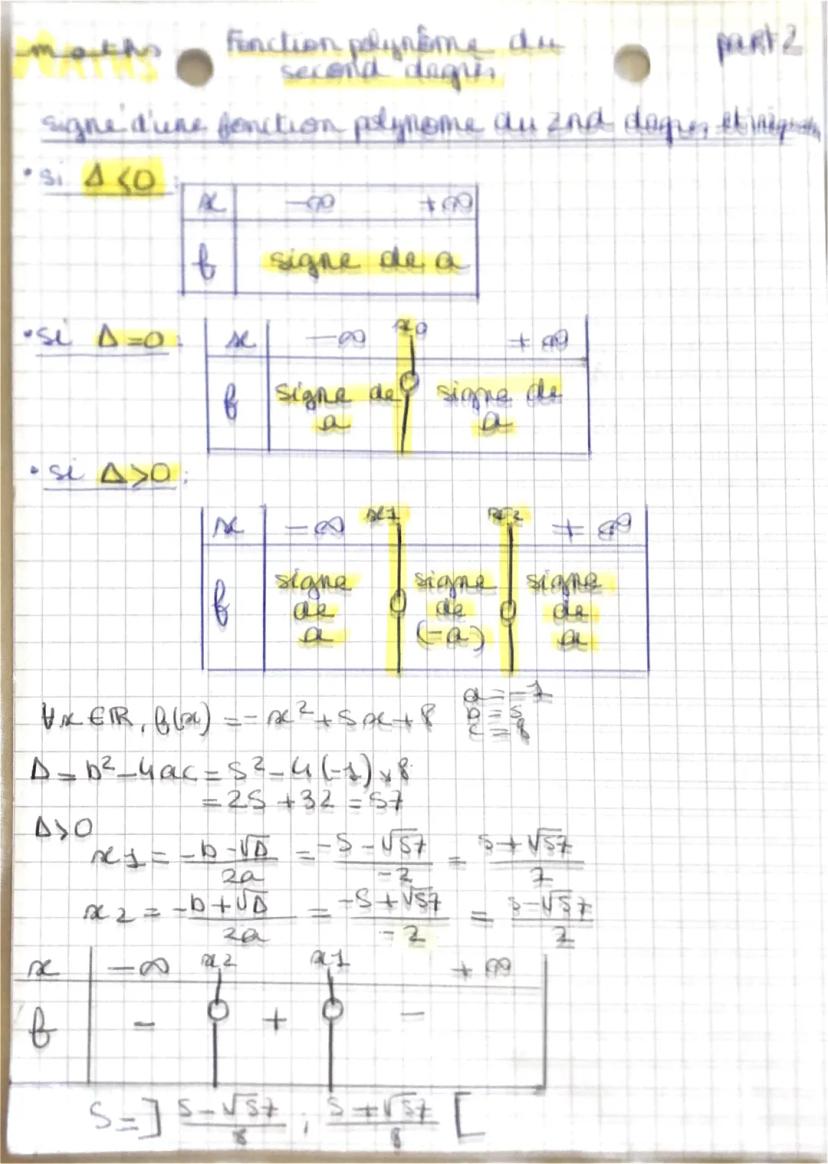 maths Fonction polynôme du part 2
MATHS second degrès
signe d'une fonction polynome du 2nd degres et
• si Δ < 0 :
x -∞ +∞
f signe de a
• si Δ = 0 :
x -∞ x0 +∞
f signe de signe de
a a
• si Δ > 0 :
x -∞ x1 x2 +∞
f signe signe signe
de de de
a (-a) a
∀x ∈ ℝ, f(x) = -x² + 5x + 8
a = -1
b = 5
c = 8
Δ = b² - 4ac = 5² - 4(-1) x 8
= 25 + 32 = 57
Δ > 0
x1 = (-b - √Δ)/2a = (-5 - √57)/-2 = (5 + √57)/2
x2 = (-b + √Δ)/2a = (-5 + √57)/-2 = (5 - √57)/2
x -∞ x2 x1 +∞
f - + -
S = ] (5 - √57)/8 ; (5 + √57)/8 [